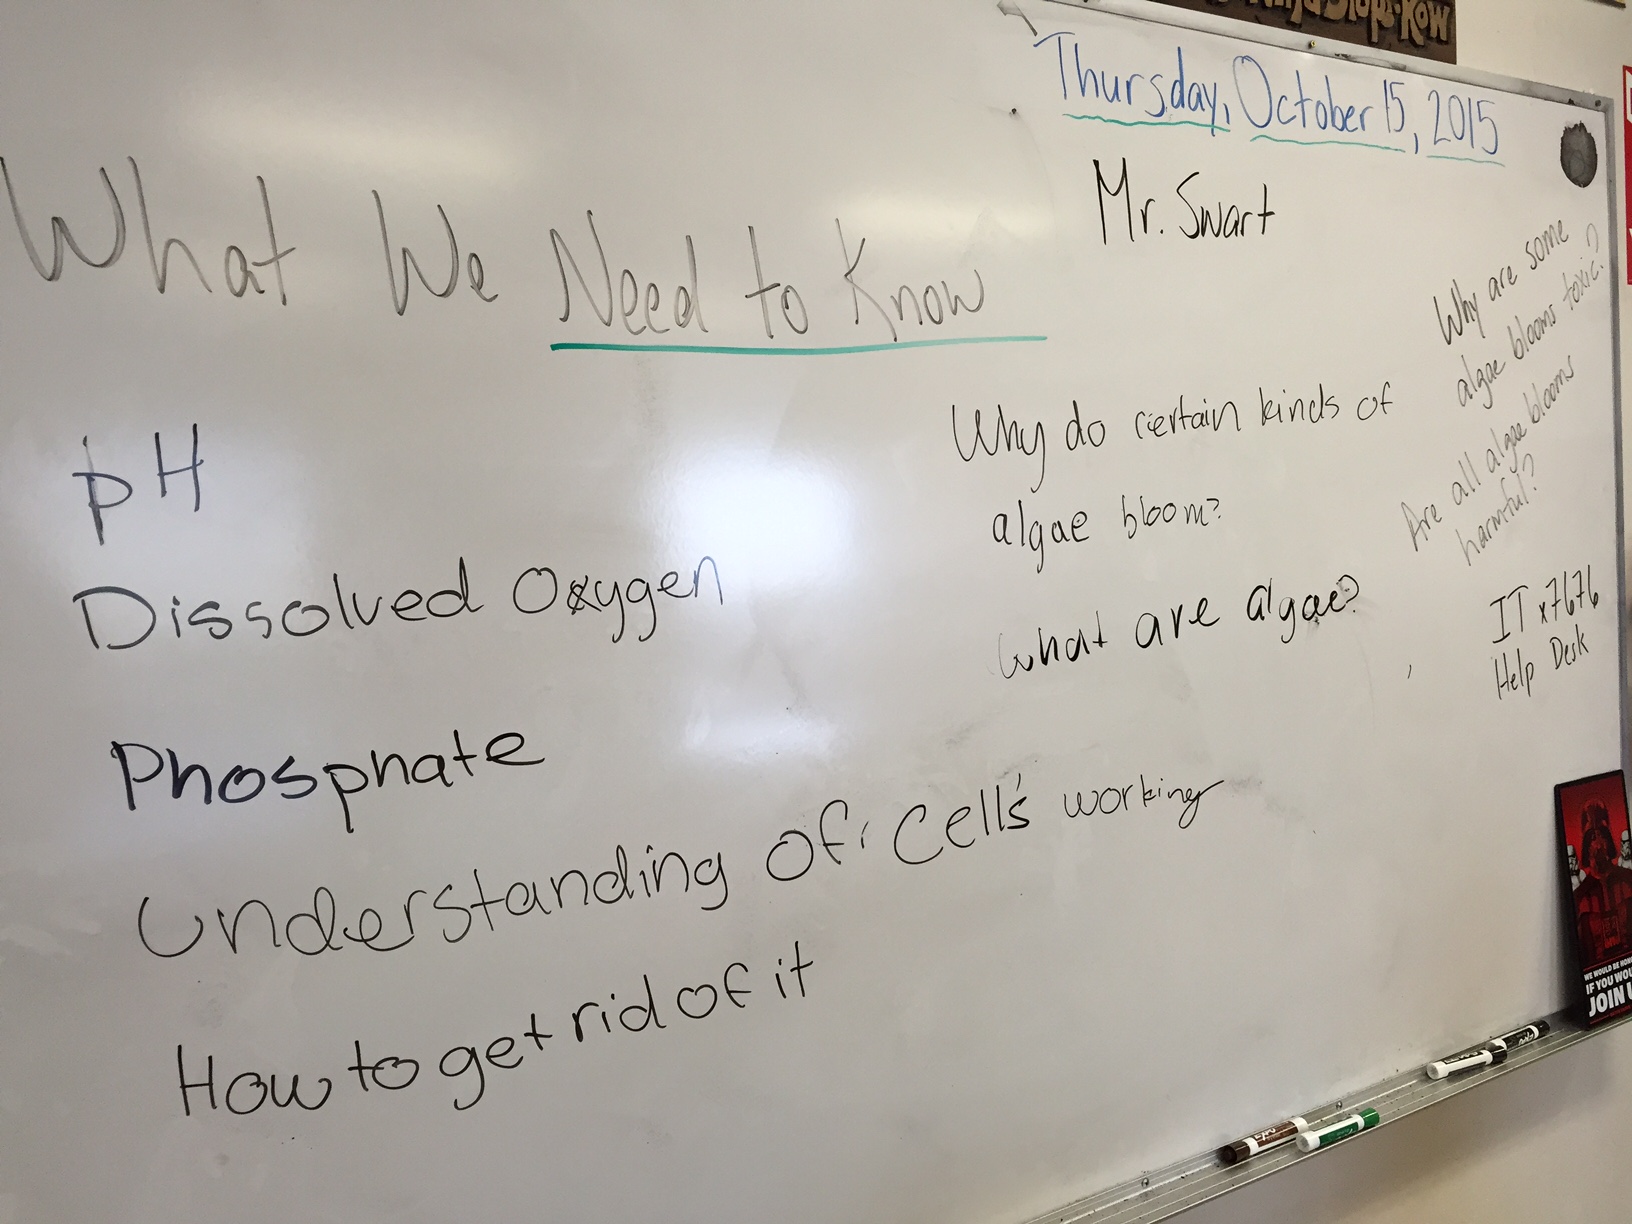 Thursday, October 15, 2015
Mr. Swart
What We Need to Know
pH
Dissolved Oxygen
Phosphate
Understanding of cell's working
How to get rid of it
Why do certain kinds of
algae bloom?
what are algae?
Why are some
algae blooms toxic?
Are all algae blooms
harmful?
IT x7676
Help Desk
IF YOU
JOIN
EXPO